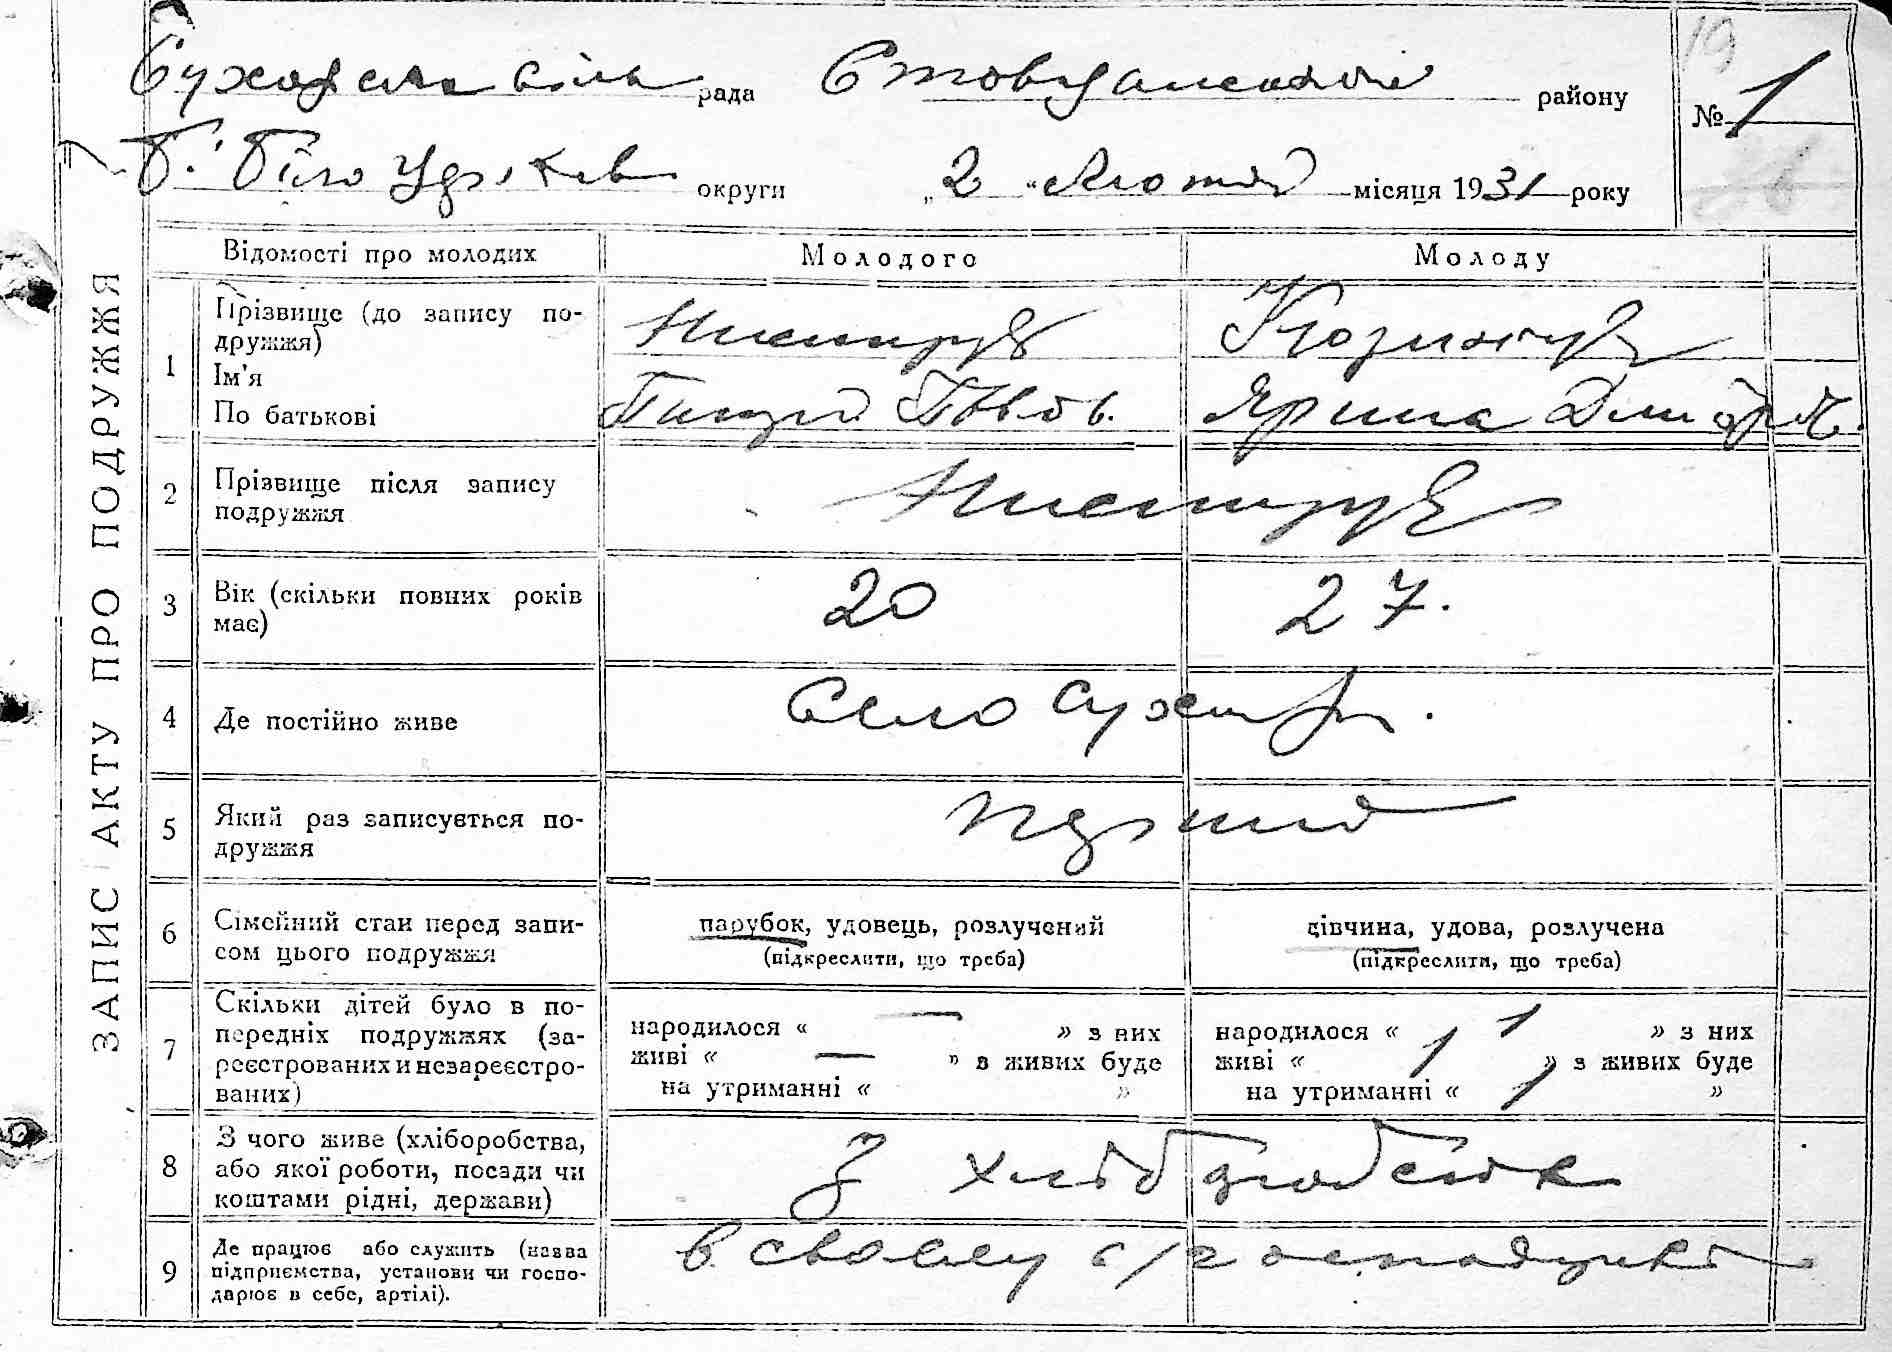 19
рада Ставищанської району № 1
Б. Білоцерків округи „ 2 " Лютого місяця 1931 року
ЗАПИС АКТУ ПРО ПОДРУЖЖЯ
Відомості про молодих Молодого Молоду
1 Прізвище (до запису по-
дружжя)
Ім'я
По батькові Ярина Дмитр.
2 Прізвище після запису
подружжя
3 Вік (скільки повних років 20 27.
має)
4 Де постійно живе Село
5 Який раз записується по- перший
дружжя
6 Сімейний стан перед запи- парубок, удовець, розлучений дівчина, удова, розлучена
сом цього подружжя (підкреслити, що треба) (підкреслити, що треба)
7 Скільки дітей було в по-
передніх подружжях (за-
реєстрованих и незареєстро-
ваних)
народилося « — » з них
живі « — » з живих буде
на утриманні « »
народилося « 1 » з них
живі « 1 » з живих буде
на утриманні « 1 »
8 З чого живе (хліборобства,
або якої роботи, посади чи
коштами рідні, держави)
З хліборобства
9 Де працює або служить (назва
підприємства, установи чи госпо-
дарює в себе, артілі).
в своєму с/господарстві